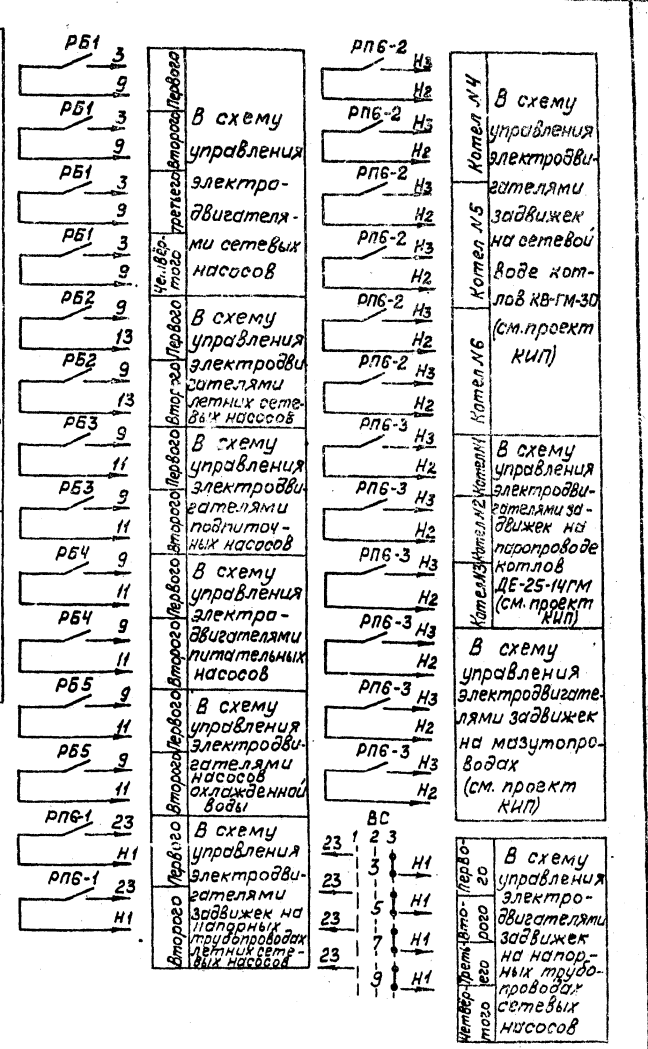 РБ1
3
9
РБ1
3
9
РБ1
3
9
РБ1
3
9
РБ2
9
13
РБ2
9
13
РБ3
9
11
РБ3
9
11
РБ4
9
11
РБ4
9
11
РБ5
9
11
РБ5
9
11
РП6-1
23
Н1
РП6-1
23
Н1
Первого
Второго
Третьего
Четвёр-
того
В схему
управления
электро-
двигателя-
ми сетевых
насосов
Первого
Второго
В схему
управления
электродви-
гателями
летних сете-
вых насосов
Первого
Второго
В схему
управления
электродви-
гателями
подпиточ-
ных насосов
Первого
Второго
В схему
управления
электро-
двигателями
питательных
насосов
Первого
Второго
В схему
управления
электродви-
гателями
насосов
охлажденной
воды
Первого
Второго
В схему
управления
электродви-
гателями
задвижек на
напорных
трубопроводах
летних сете-
вых насосов
РП6-2
Н3
Н2
РП6-2
Н3
Н2
РП6-2
Н3
Н2
РП6-2
Н3
Н2
РП6-2
Н3
Н2
РП6-2
Н3
Н2
РП6-3
Н3
Н2
РП6-3
Н3
Н2
РП6-3
Н3
Н2
РП6-3
Н3
Н2
РП6-3
Н3
Н2
РП6-3
Н3
Н2
ВС
1 2 3
23
3
Н1
23
5
Н1
23
7
Н1
23
9
Н1
Котел N4
Котел N5
Котел N6
В схему
управления
электродви-
гателями
задвижек
на сетевой
воде кот-
лов КВ-ГМ-30
(см. проект
КИП)
Котел N1
Котел N2
Котел N3
В схему
управления
электродви-
гателями за-
движек на
паропроводе
котлов
ДЕ-25-14ГМ
(см. проект
КИП)
В схему
управления
электродвигате-
лями задвижек
на мазутопро-
водах
(см. проект
КИП)
Перво-
го
Вто-
рого
Треть-
его
Четвёр-
того
В схему
управления
электро-
двигателями
задвижек
на напор-
ных трубо-
проводах
сетевых
насосов